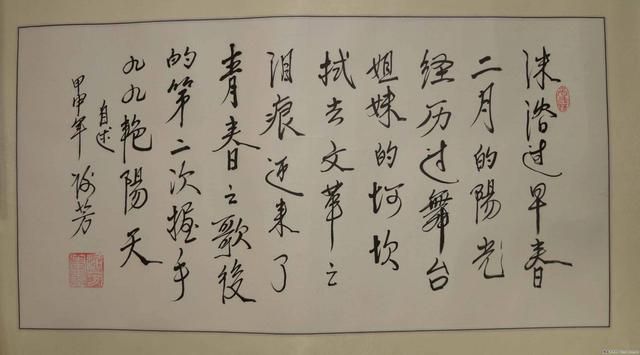 沐浴过早春
二月的陽光
经历过舞台
姐妹的坷坎
拭去文革之
泪痕迎来了
青春之歌後
的第二次握手
九九艳陽天
自述
甲申年 芳